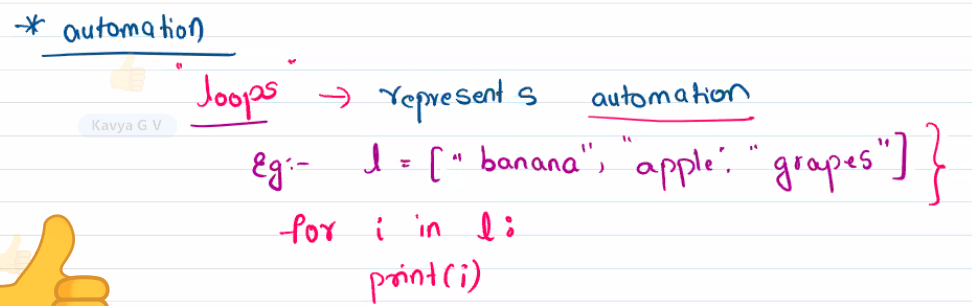 * automation
"loops" → represents automation
Kavya G V
Eg:- l = ["banana", "apple", "grapes"] }
for i in l:
print(i)